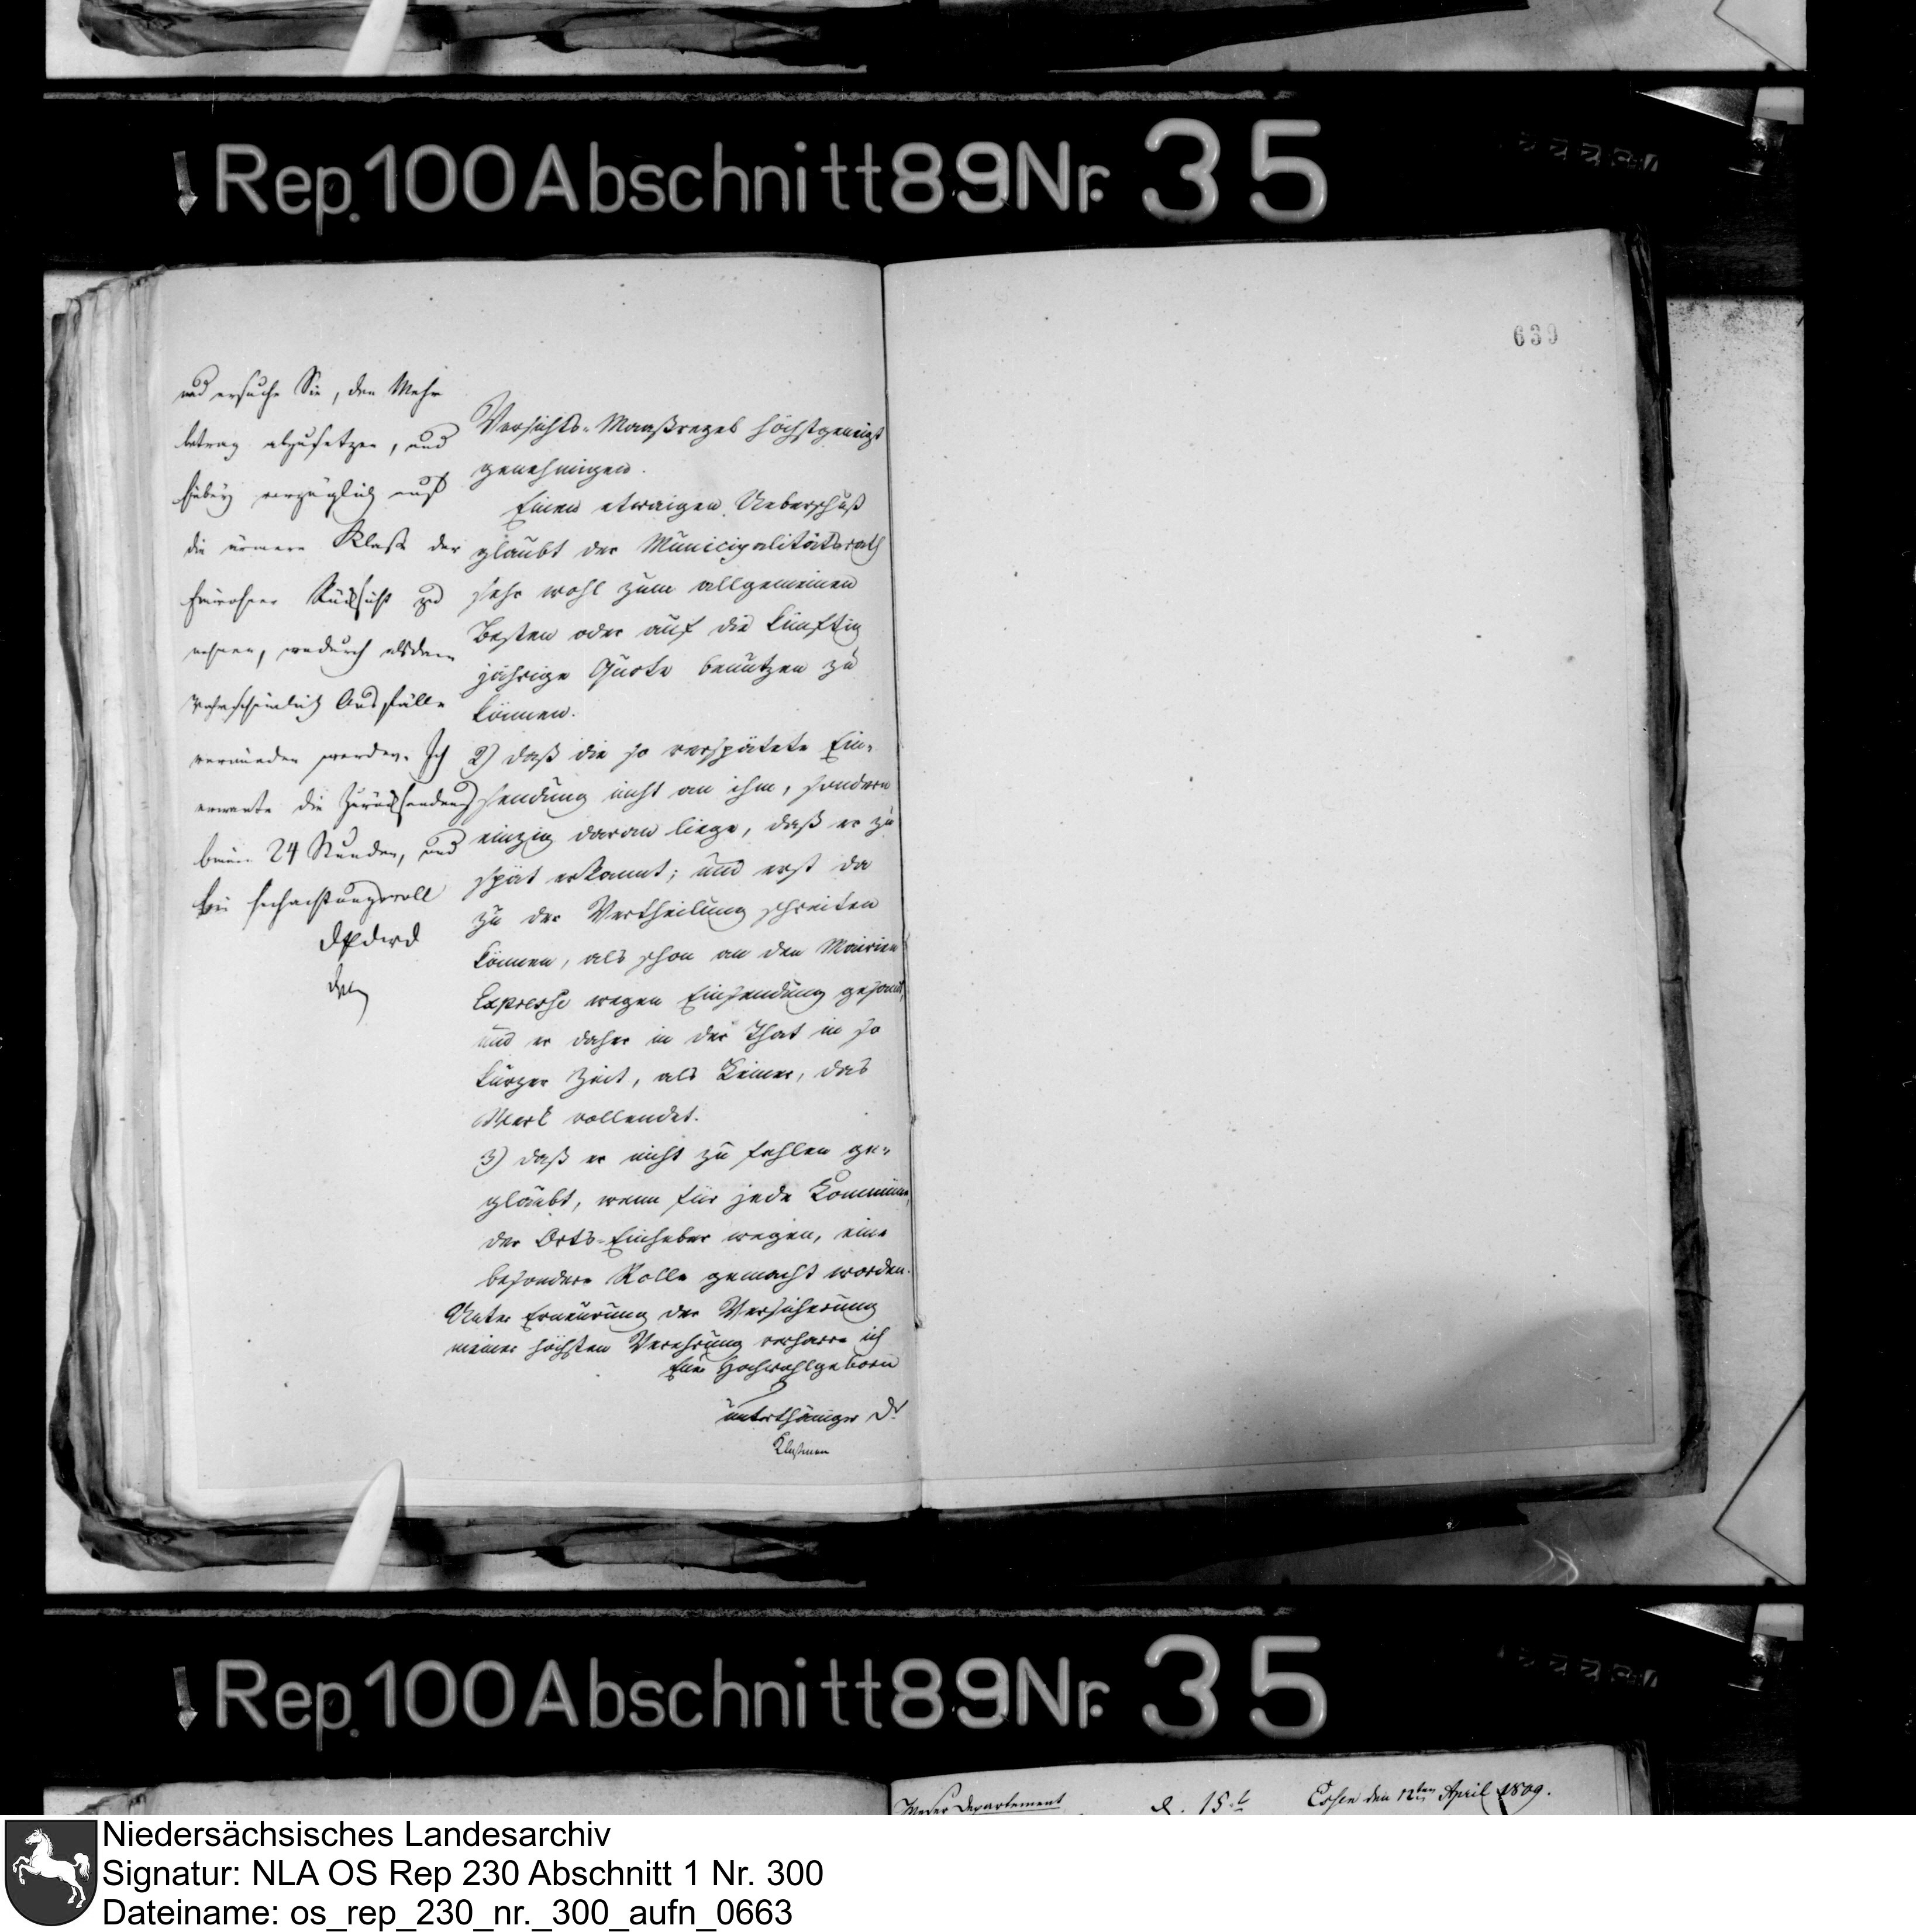 Rep. 100 Abschnitt 89 Nr. 35
639
und ersuche Sie, den Mehr
betrag abzusetzen, und
hiebey vorzüglich auf
die ärmere Klasse der
Einwohner Rücksicht zu
nehmen, wodurch alsdann
wahrscheinlich Ausfälle
vermieden werden. Ich
erwarte die Zurücksendung
binnen 24 Stunden, und
bin hochachtungsvoll
Vorsichts-Maaßregel höchstgeneigt
genehmigen.
Einen etwaigen Ueberschuß
glaubt der Municipalitätsrath
sehr wohl zum allgemeinen
Besten oder auf die künftig
jährige Quote benutzen zu
können.
2) daß die so verspätete Ein-
sendung nicht an ihm, sondern
einzig daran liege, daß er zu
spät erkannt; und erst da
zu der Vertheilung schreiten
können, als schon an den Mairien
Expresse wegen Einsendung gesandt,
und er daher in der That in so
kurzer Zeit, als Keiner, das
Werk vollendet.
3) daß er nicht zu fehlen ge-
glaubt, wenn für jede Commune,
der Orts-Einheber wegen, eine
besondere Rolle gemacht worden.
Unter Erneurung der Versicherung
meiner höchsten Verehrung verharre ich
Euer Hochwohlgeborn
unterthäniger Dr
Rep. 100 Abschnitt 89 Nr. 35
Weser Departement
d. 15t
Essen den 12ten April 1809.
Niedersächsisches Landesarchiv
Signatur: NLA OS Rep 230 Abschnitt 1 Nr. 300
Dateiname: os_rep_230_nr._300_aufn_0663